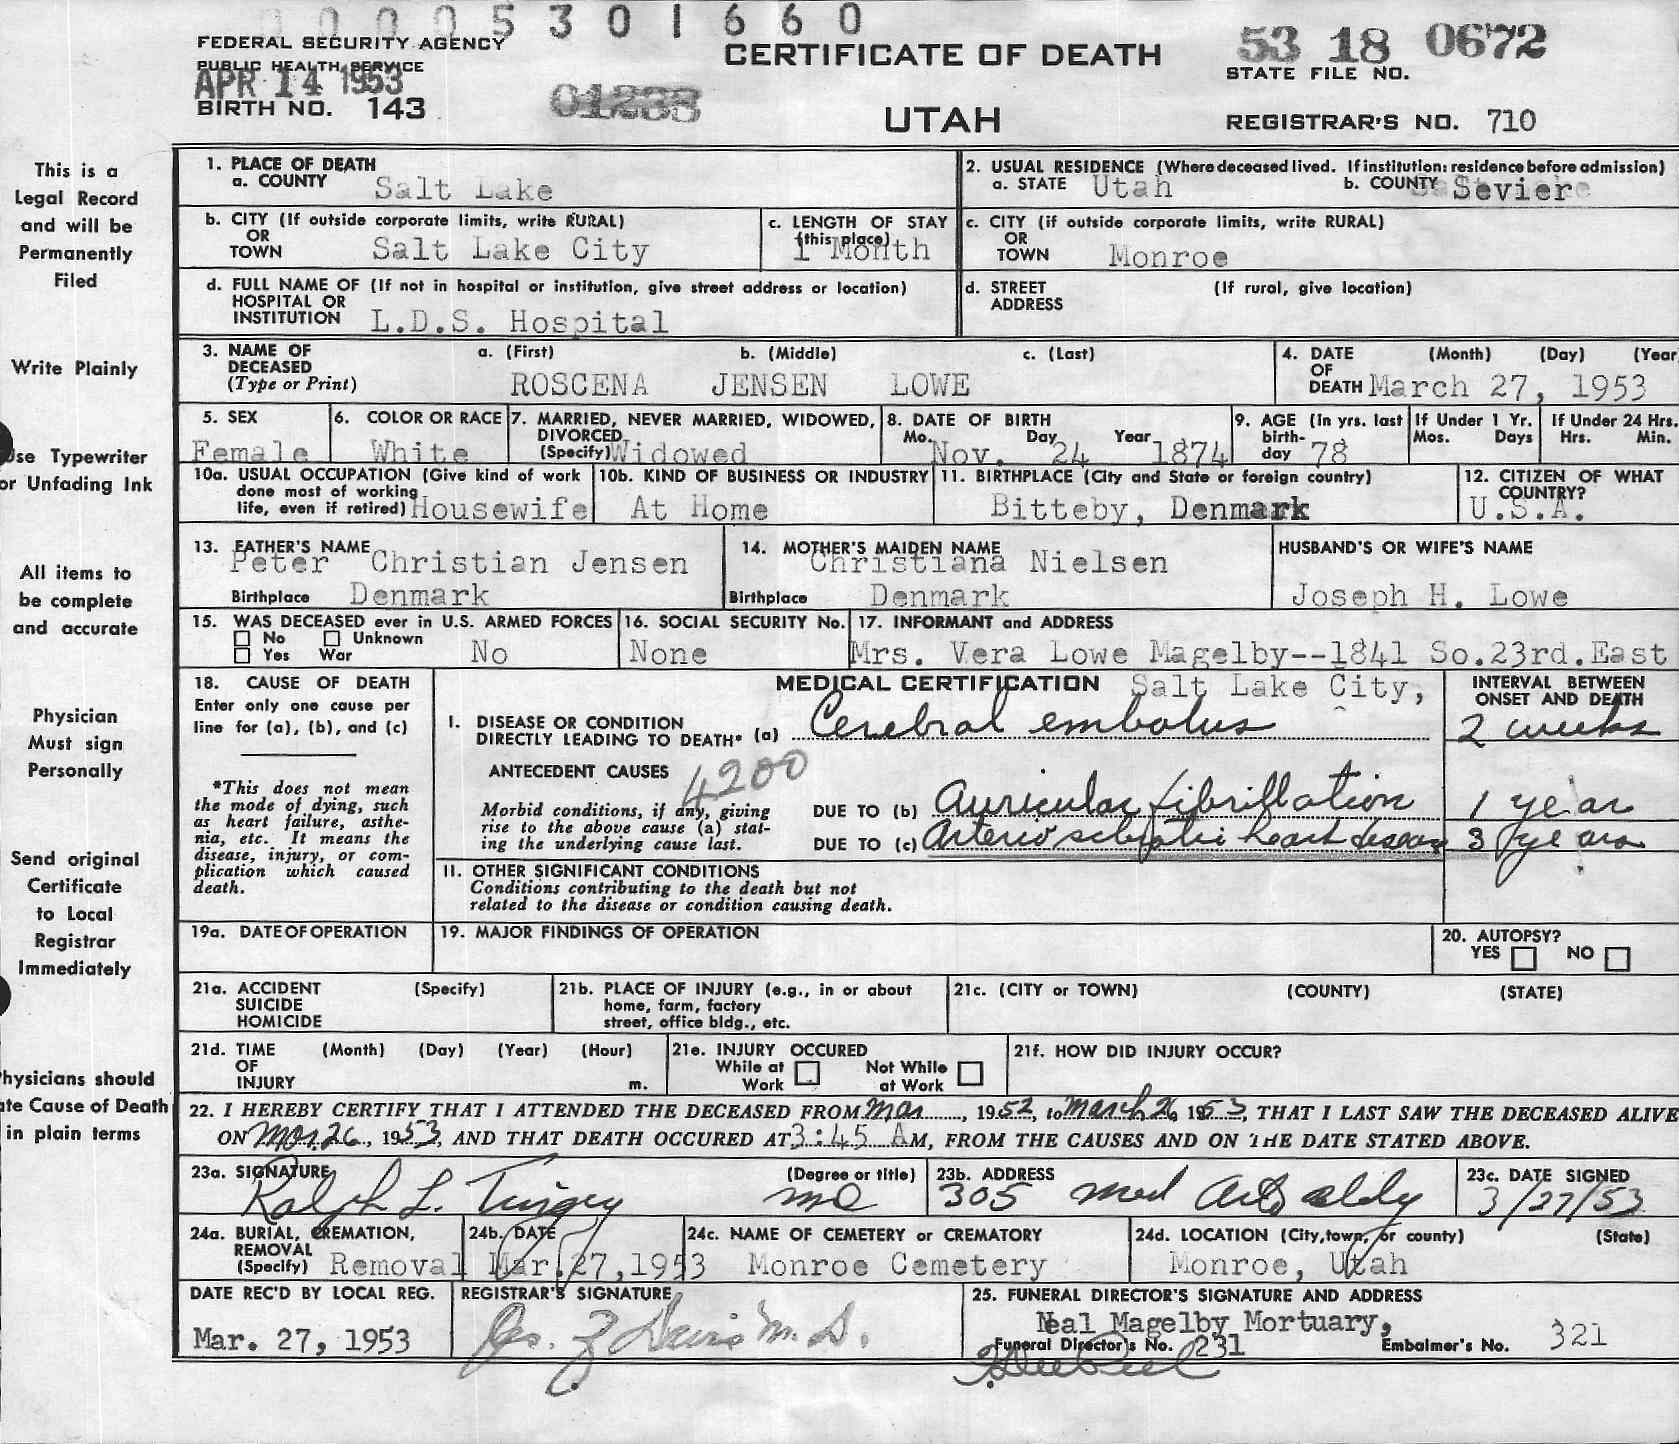 0 0 0 0 5 3 0 1 6 6 0
FEDERAL SECURITY AGENCY
PUBLIC HEALTH SERVICE
APR 14 1953
BIRTH NO. 143
CERTIFICATE OF DEATH
UTAH
53 18 0672
STATE FILE NO.
REGISTRAR'S NO. 710
This is a
Legal Record
and will be
Permanently
Filed
Write Plainly
Use Typewriter
or Unfading Ink
All items to
be complete
and accurate
Physician
Must sign
Personally
Send original
Certificate
to Local
Registrar
Immediately
hysicians should
te Cause of Death
in plain terms
1. PLACE OF DEATH
a. COUNTY Salt Lake
2. USUAL RESIDENCE (Where deceased lived. If institution: residence before admission)
a. STATE Utah b. COUNTY Sevier
b. CITY (If outside corporate limits, write RURAL)
OR
TOWN Salt Lake City
c. LENGTH OF STAY
(this place)
1 Month
c. CITY (if outside corporate limits, write RURAL)
OR
TOWN Monroe
d. FULL NAME OF (If not in hospital or institution, give street address or location)
HOSPITAL OR
INSTITUTION L.D.S. Hospital
d. STREET (If rural, give location)
ADDRESS
3. NAME OF DECEASED
(Type or Print)
a. (First) b. (Middle) c. (Last)
ROSCENA JENSEN LOWE
4. DATE (Month) (Day) (Year
OF
DEATH March 27, 1953
5. SEX
Female
6. COLOR OR RACE
White
7. MARRIED, NEVER MARRIED, WIDOWED,
DIVORCED
(Specify) Widowed
8. DATE OF BIRTH
Mo. Day Year
Nov. 24 1874
9. AGE (In yrs. last
birth-
day 78
If Under 1 Yr.
Mos. Days
If Under 24 Hrs.
Hrs. Min.
10a. USUAL OCCUPATION (Give kind of work
done most of working
life, even if retired) Housewife
10b. KIND OF BUSINESS OR INDUSTRY
At Home
11. BIRTHPLACE (City and State or foreign country)
Bitteby, Denmark
12. CITIZEN OF WHAT
COUNTRY?
U.S.A.
13. FATHER'S NAME
Peter Christian Jensen
Birthplace Denmark
14. MOTHER'S MAIDEN NAME
Christiana Nielsen
Birthplace Denmark
HUSBAND'S OR WIFE'S NAME
Joseph H. Lowe
15. WAS DECEASED ever in U.S. ARMED FORCES
No Unknown
Yes War No
16. SOCIAL SECURITY No.
None
17. INFORMANT and ADDRESS
Mrs. Vera Lowe Magelby--1841 So.23rd.East
Salt Lake City,
18. CAUSE OF DEATH
Enter only one cause per
line for (a), (b), and (c)
*This does not mean
the mode of dying, such
as heart failure, asthe-
nia, etc. It means the
disease, injury, or com-
plication which caused
death.
MEDICAL CERTIFICATION
INTERVAL BETWEEN
ONSET AND DEATH
I. DISEASE OR CONDITION
DIRECTLY LEADING TO DEATH* (a) Cerebral embolus 2 weeks
ANTECEDENT CAUSES 4200
Morbid conditions, if any, giving
rise to the above cause (a) stat-
ing the underlying cause last.
DUE TO (b) Auricular fibrillation 1 year
DUE TO (c) Arterio sclerotic heart disease 3 years
II. OTHER SIGNIFICANT CONDITIONS
Conditions contributing to the death but not
related to the disease or condition causing death.
19a. DATE OF OPERATION
19. MAJOR FINDINGS OF OPERATION
20. AUTOPSY?
YES NO
21a. ACCIDENT (Specify)
SUICIDE
HOMICIDE
21b. PLACE OF INJURY (e.g., in or about
home, farm, factory
street, office bldg., etc.
21c. (CITY or TOWN) (COUNTY) (STATE)
21d. TIME (Month) (Day) (Year) (Hour)
OF
INJURY m.
21e. INJURY OCCURED
While at Work Not While at Work
21f. HOW DID INJURY OCCUR?
22. I HEREBY CERTIFY THAT I ATTENDED THE DECEASED FROM Mar, 1952, to March 26, 1953, THAT I LAST SAW THE DECEASED ALIVE
ON Mar. 26, 1953, AND THAT DEATH OCCURED AT 3:45 AM, FROM THE CAUSES AND ON THE DATE STATED ABOVE.
23a. SIGNATURE (Degree or title)
Ralph L. Tingey MD
23b. ADDRESS
305 Med Arts Bldg
23c. DATE SIGNED
3/27/53
24a. BURIAL, CREMATION,
REMOVAL
(Specify) Removal
24b. DATE
Mar. 27, 1953
24c. NAME OF CEMETERY OR CREMATORY
Monroe Cemetery
24d. LOCATION (City, town, or county) (State)
Monroe, Utah
DATE REC'D BY LOCAL REG.
Mar. 27, 1953
REGISTRAR'S SIGNATURE
Davis M.D.
25. FUNERAL DIRECTOR'S SIGNATURE AND ADDRESS
Neal Magelby Mortuary,
Funeral Director's No. 231 Embalmer's No. 321